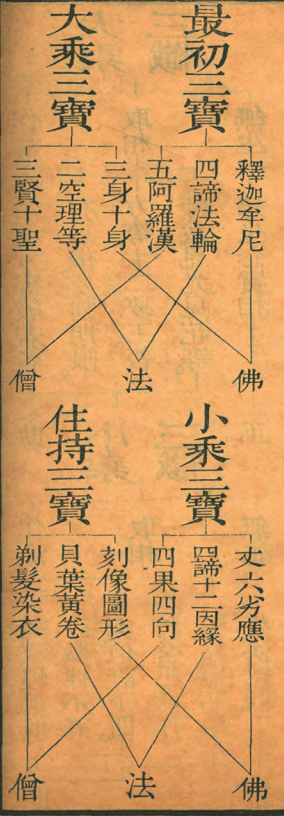 最初三寶
釋迦牟尼
四諦法輪
五阿羅漢
大乘三寶
三身十身
二空理等
三賢十聖
佛
法
僧
小乘三寶
丈六劣應
四諦十二因緣
四果四向
住持三寶
刻像圖形
貝葉黃卷
剃髮染衣
佛
法
僧